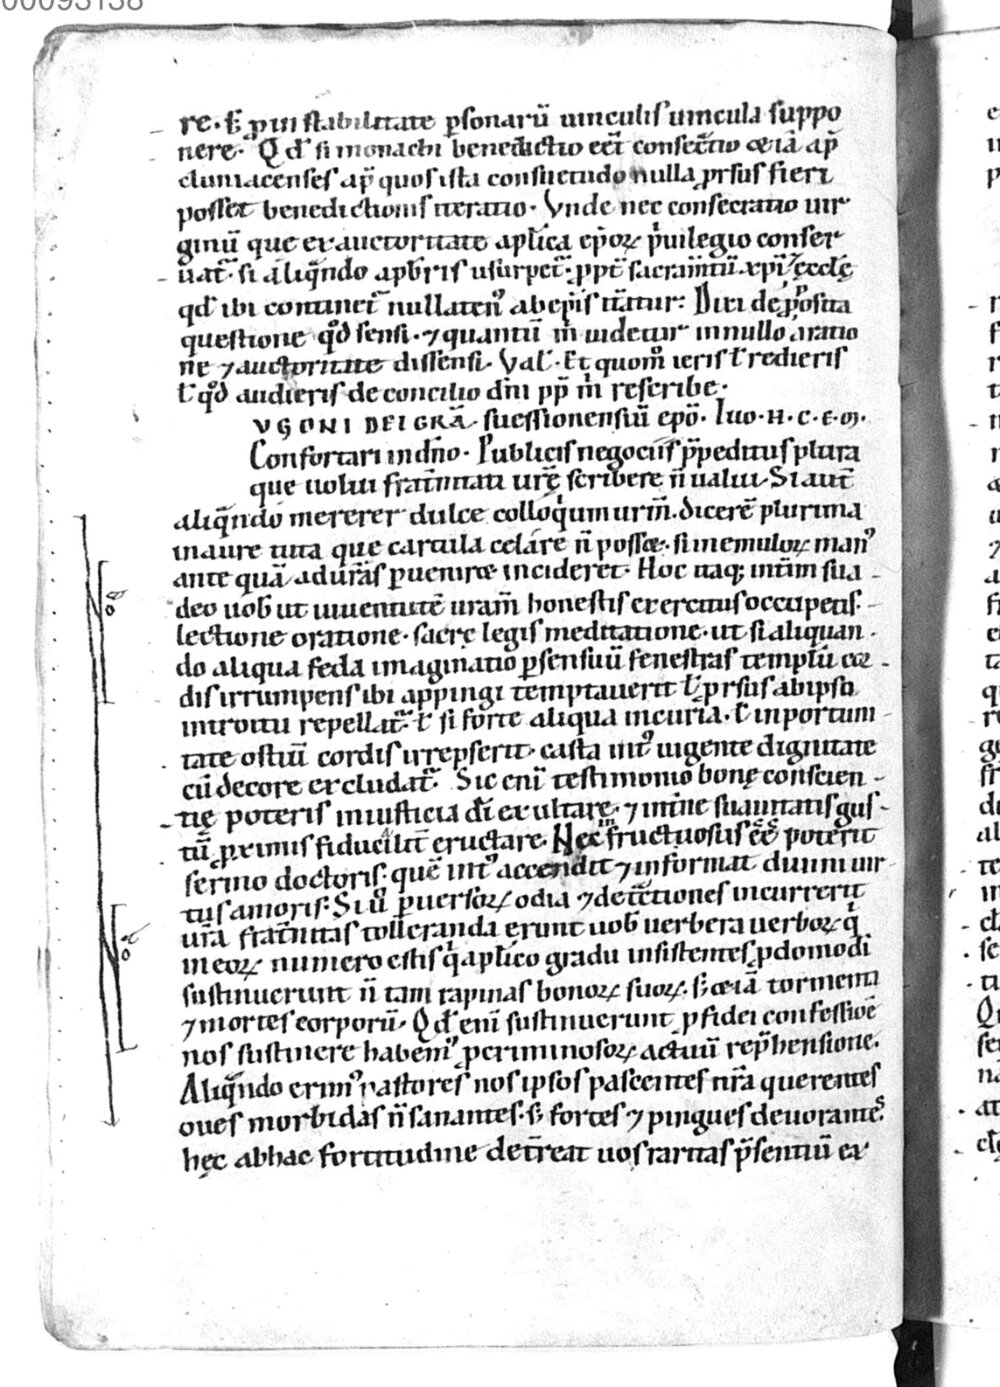 00093138
re. s; p̱ instabilitate ꝑsonarū uinculis uincula suppo
nere. Qd̄ si monachi benedictio eēt consecᵗtio &iā ap̄
cluniacenses ap̄ quos ista consuetudo nulla ꝓrsus fieri
posset benedictionis iteratio. Vnde nec consecratio uir
ginū que ex auctoritate aplica ep̄oꝝ pͥuilegio conser
uatᷣ. si aliqn̄do a pb̄ris usurpetᷣ. ꝓpt̄ sacram̄tū xp̄i ⁊ ęcclę
qd̄ ibi continetᷣ nullatenꝰ ab ep̄is itᷣatur: Dixi de ꝓposita
questione qͦd sensi. ⁊ quantū m̄ uidetur in nullo a ratio
ne ⁊ auctoritate dissensi. Val̄. Et quom̊ ieris l̄ redieris
l̄ qͦd audieris de concilio dn̄i pp̄ m̄ rescribe.
VGONI DEI GR̄A. suessionensiū ep̄o. Iuo. H. C. E. M.
Confortari in dn̄o. Publicis negociis p̄peditus plura
que uolui frat̄nitati ur̄ę scribere n̄ ualui. Si aut̄
aliqn̄do mererer dulce colloqͥum ur̄m. dicerē plurima
in aure tuta que cartula celare n̄ posset. si in emuloꝝ manꝰ
ante quā ad ur̄as ꝑuenir& incideret. Hoc itaq; int̄im sua
deo uob̄ ut iuuentutē ur̄am honestis exercitiis occupetis.
lectione oratione. sacrę legis meditatione. ut si aliquan
do aliqua feda imaginatio ꝑ sensuū fenestras templū cor
dis irrumpens ibi appingi temptauerit l̄ ꝓrsus ab ipso
introitu repellatᷣ. l̄ si forte aliqua incuria. l̄ inportuni
tate ostiū cordis irrepserit. casta intꝰ uigente dignitate
cū decore excludatᷣ. Sic enī testimonio bonę conscien
tię poteris in iusticia dī exultare. ⁊ intime suauitatis gus
tū ꝓximis fiducilit̄ eructare. Nec infructuosus eē poterit
sermo doctoris: quē intꝰ accendit ⁊ informat diuini uir
tus amoris: Si ū ꝑuersoꝝ odia ⁊ det̄ctiones incurrerit
ur̄a frat̄nitas tolleranda erunt uob̄ uerbera uerboꝝ qͥ
in eoꝝ numero estis qͥ aplico gradu insistentes ꝓ domo dī
sustinuerunt n̄ tam rapinas bonoꝝ suoꝝ. s; &iā tormenta
⁊ mortes corporū. Qd̄ enī sustinuerunt ꝓ fidei confessiōe
nos sustinere habem̄ꝰ ꝓ criminosoꝝ actuū rep̄hensione.
Aliqn̄do erim̄ꝰ pastores nos ipsos pascentes nr̄a querentes
oues morbidas n̄ sanantes. s; fortes ⁊ pingues deuorantes.
hęc ab hac fortitudine det̄reat uos raritas p̄sentiū ex